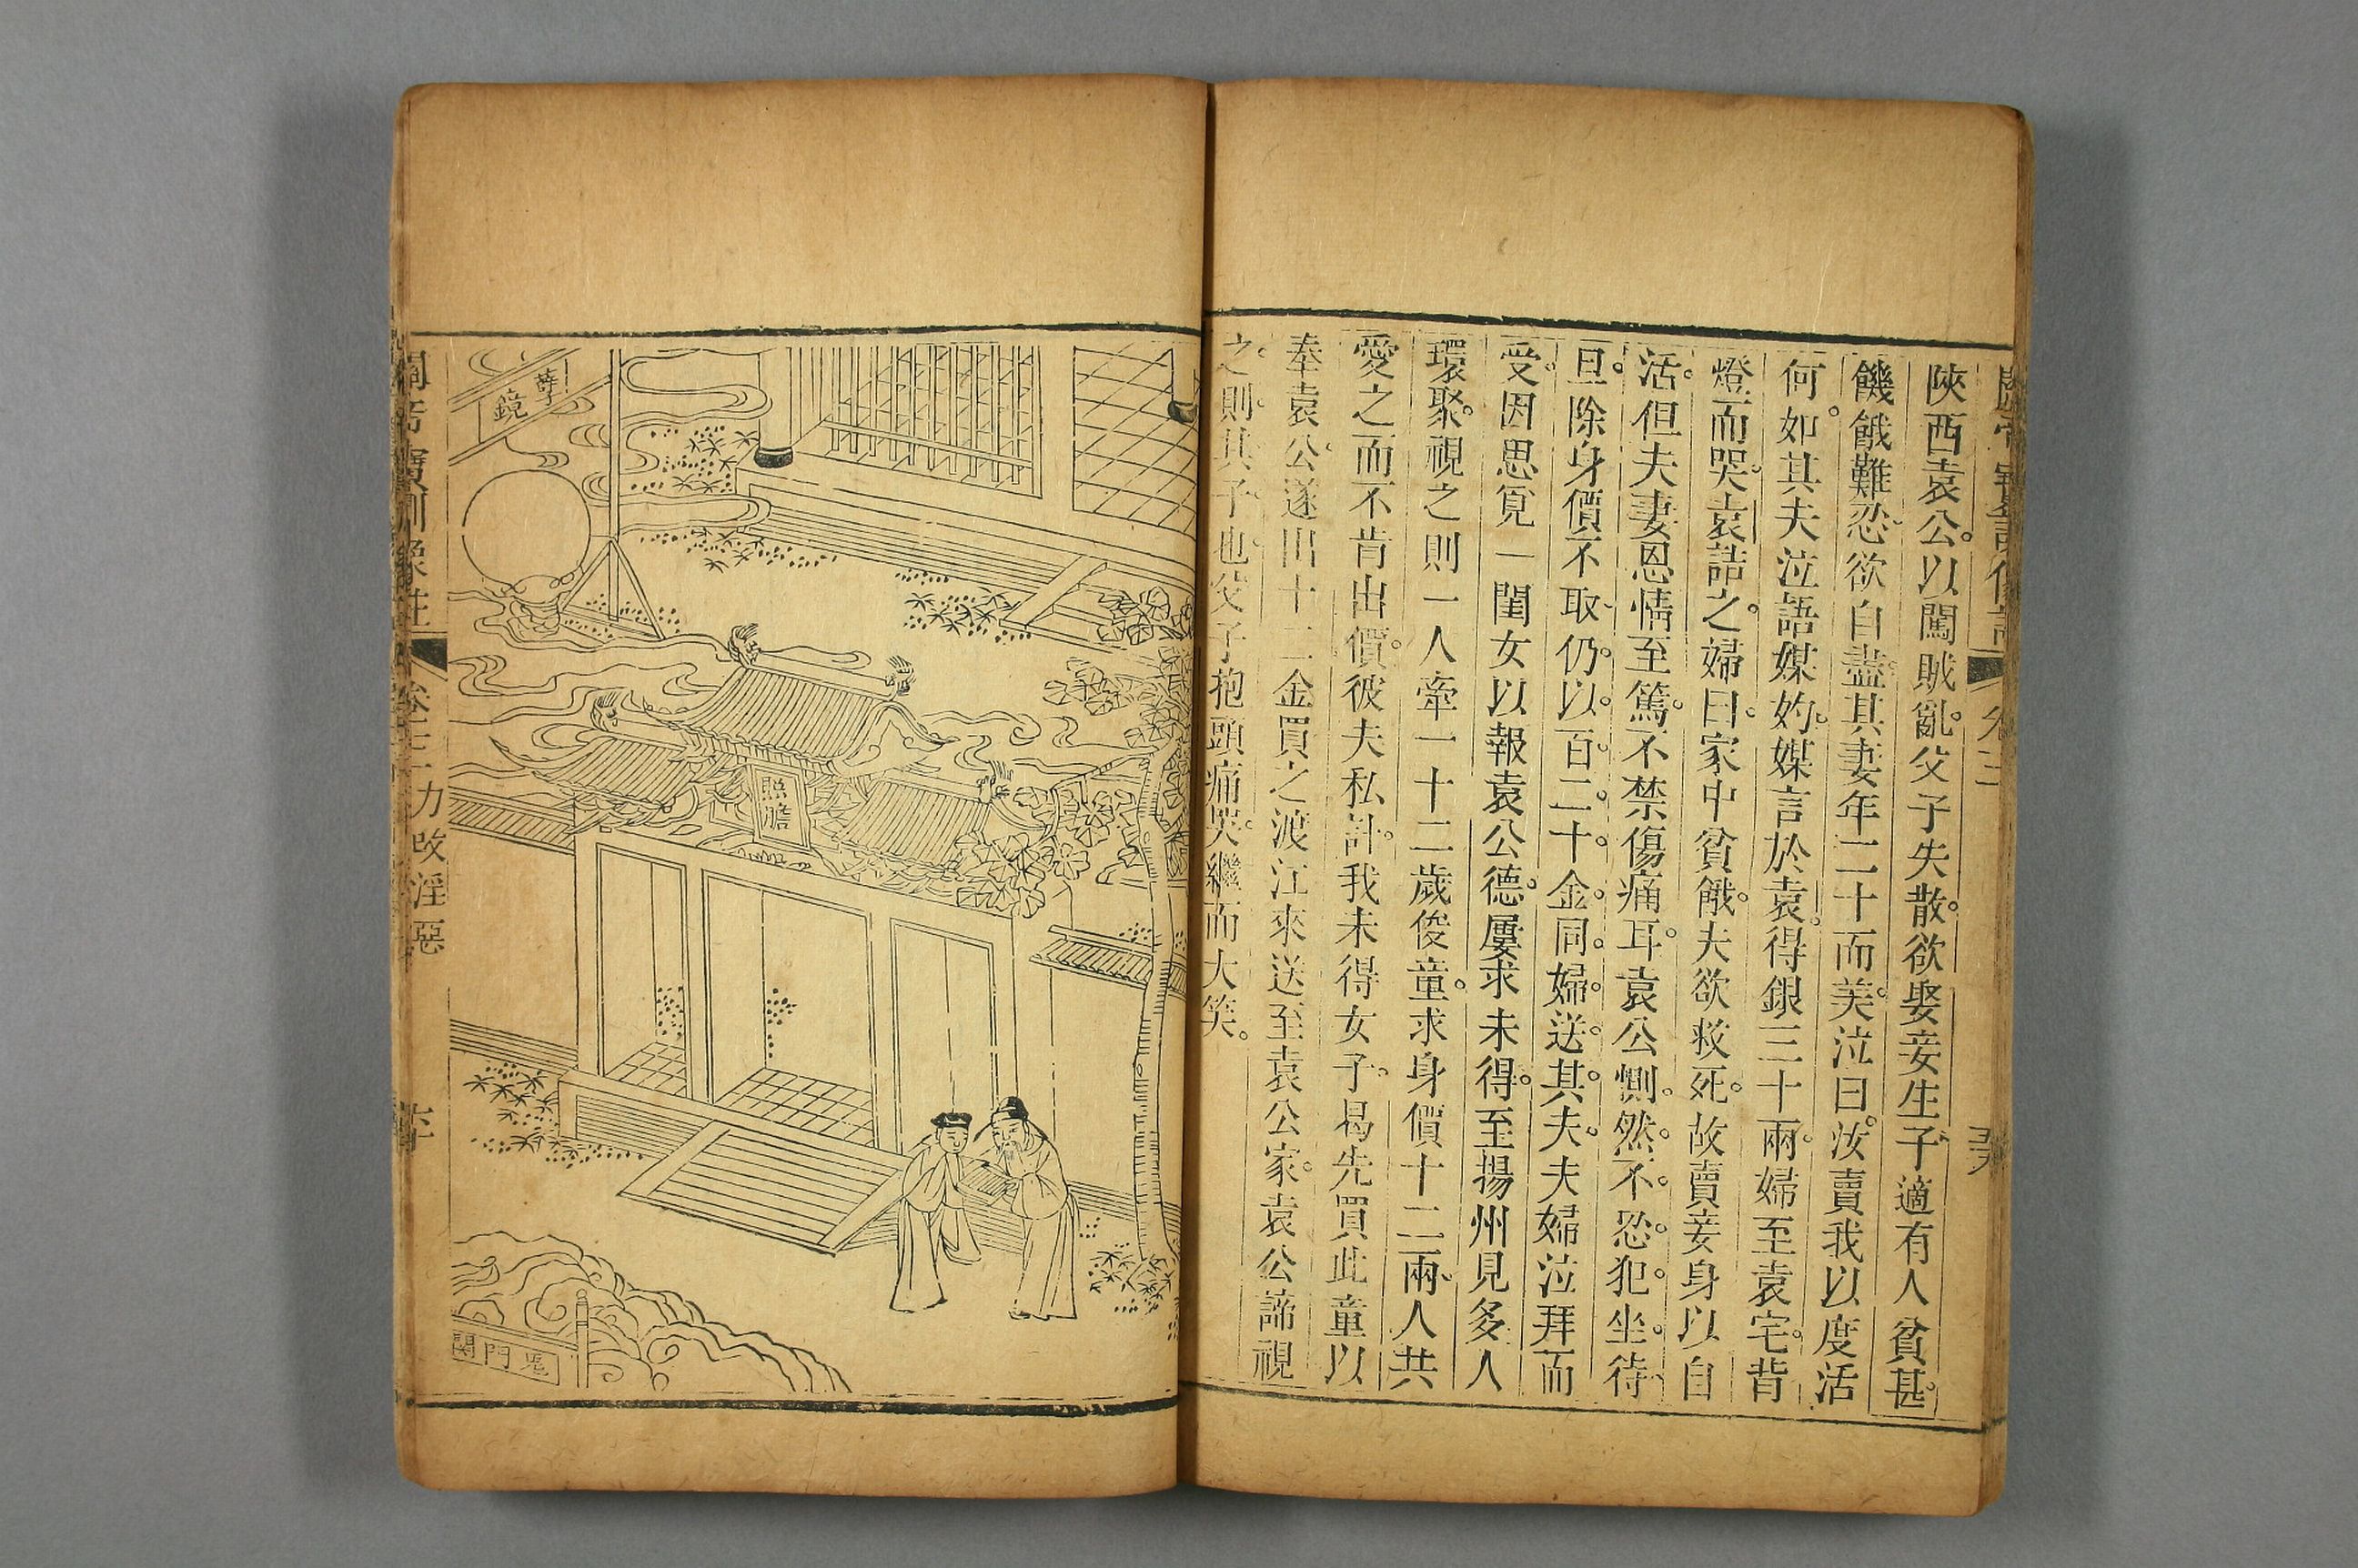 陝西袁公以闖賊亂父子失散欲娶妾生子適有人貧甚
饑餓難忍欲自盡其妻年二十而美泣曰汝賣我以度活
何如其夫泣語媒妁媒言於袁得銀三十兩婦至袁宅背
燈而哭袁詰之婦曰家中貧餓夫欲救死故賣妾身以自
活但夫妻恩情至篤不禁傷痛耳袁公惻然不恐犯坐待
旦除身價不取仍以百二十金同婦送其夫夫婦泣拜而
受因思覓一閨女以報袁公德屢求未得至揚州見多人
環聚視之則一人牽一十二歲俊童求身價十二兩人共
愛之而不肯出價彼夫私計我未得女子曷先買此童以
奉袁公遂出十二金買之渡江來送至袁公家袁公諦視
之則其子也父子抱頭痛哭繼而大笑
孽鏡
照膽
鬼門關
卷三 力改淫惡